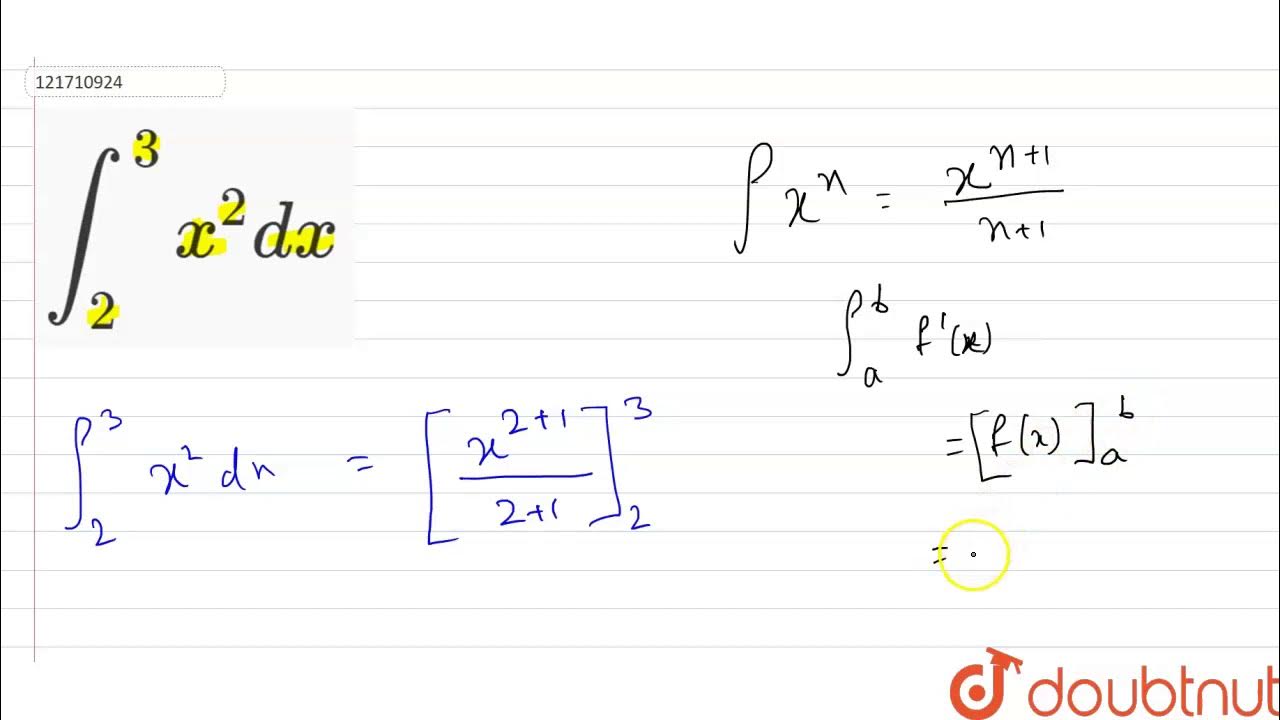 121710924
∫₂³ x² dx
∫ xⁿ = xⁿ⁺¹ / n+1
∫ₐᵇ f'(x)
= [f(x)]ₐᵇ
=
∫₂³ x² dx = [x²⁺¹ / 2+1]₂³
doubtnut